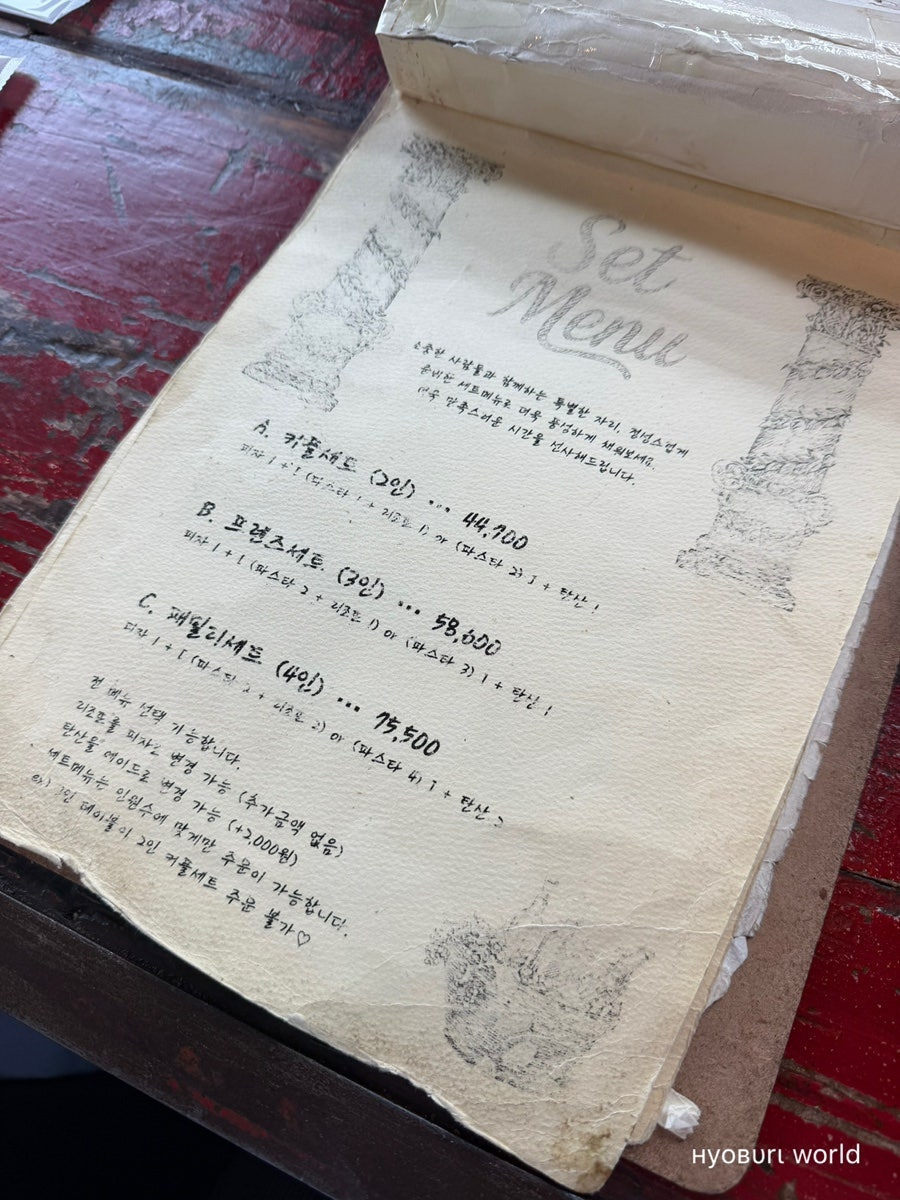 Set
Menu
소중한 사람들과 함께하는 특별한 자리, 정성스럽게
준비한 세트메뉴로 더욱 풍성하게 채워보세요.
더욱 만족스러운 시간을 선사해드립니다.
A. 커플세트 (2인) ... 44,700
피자 1 + [ (파스타 1 + 리조또 1) or (파스타 2) ] + 탄산 1
B. 프렌즈세트. (3인) ... 58,600
피자 1 + [ (파스타 2 + 리조또 1) or (파스타 3) ] + 탄산 1
C. 패밀리세트 (4인) ... 75,500
피자 1 + [ (파스타 2 + 리조또 2) or (파스타 4) ] + 탄산 2
전 메뉴 선택 가능합니다.
리조또를 피자로 변경 가능 (추가금액 없음)
탄산을 에이드로 변경 가능 (+2,000원)
세트메뉴는 인원수에 맞게만 주문이 가능합니다.
ex) 3인 테이블이 2인 커플세트 주문 불가♡
HYOBURI world